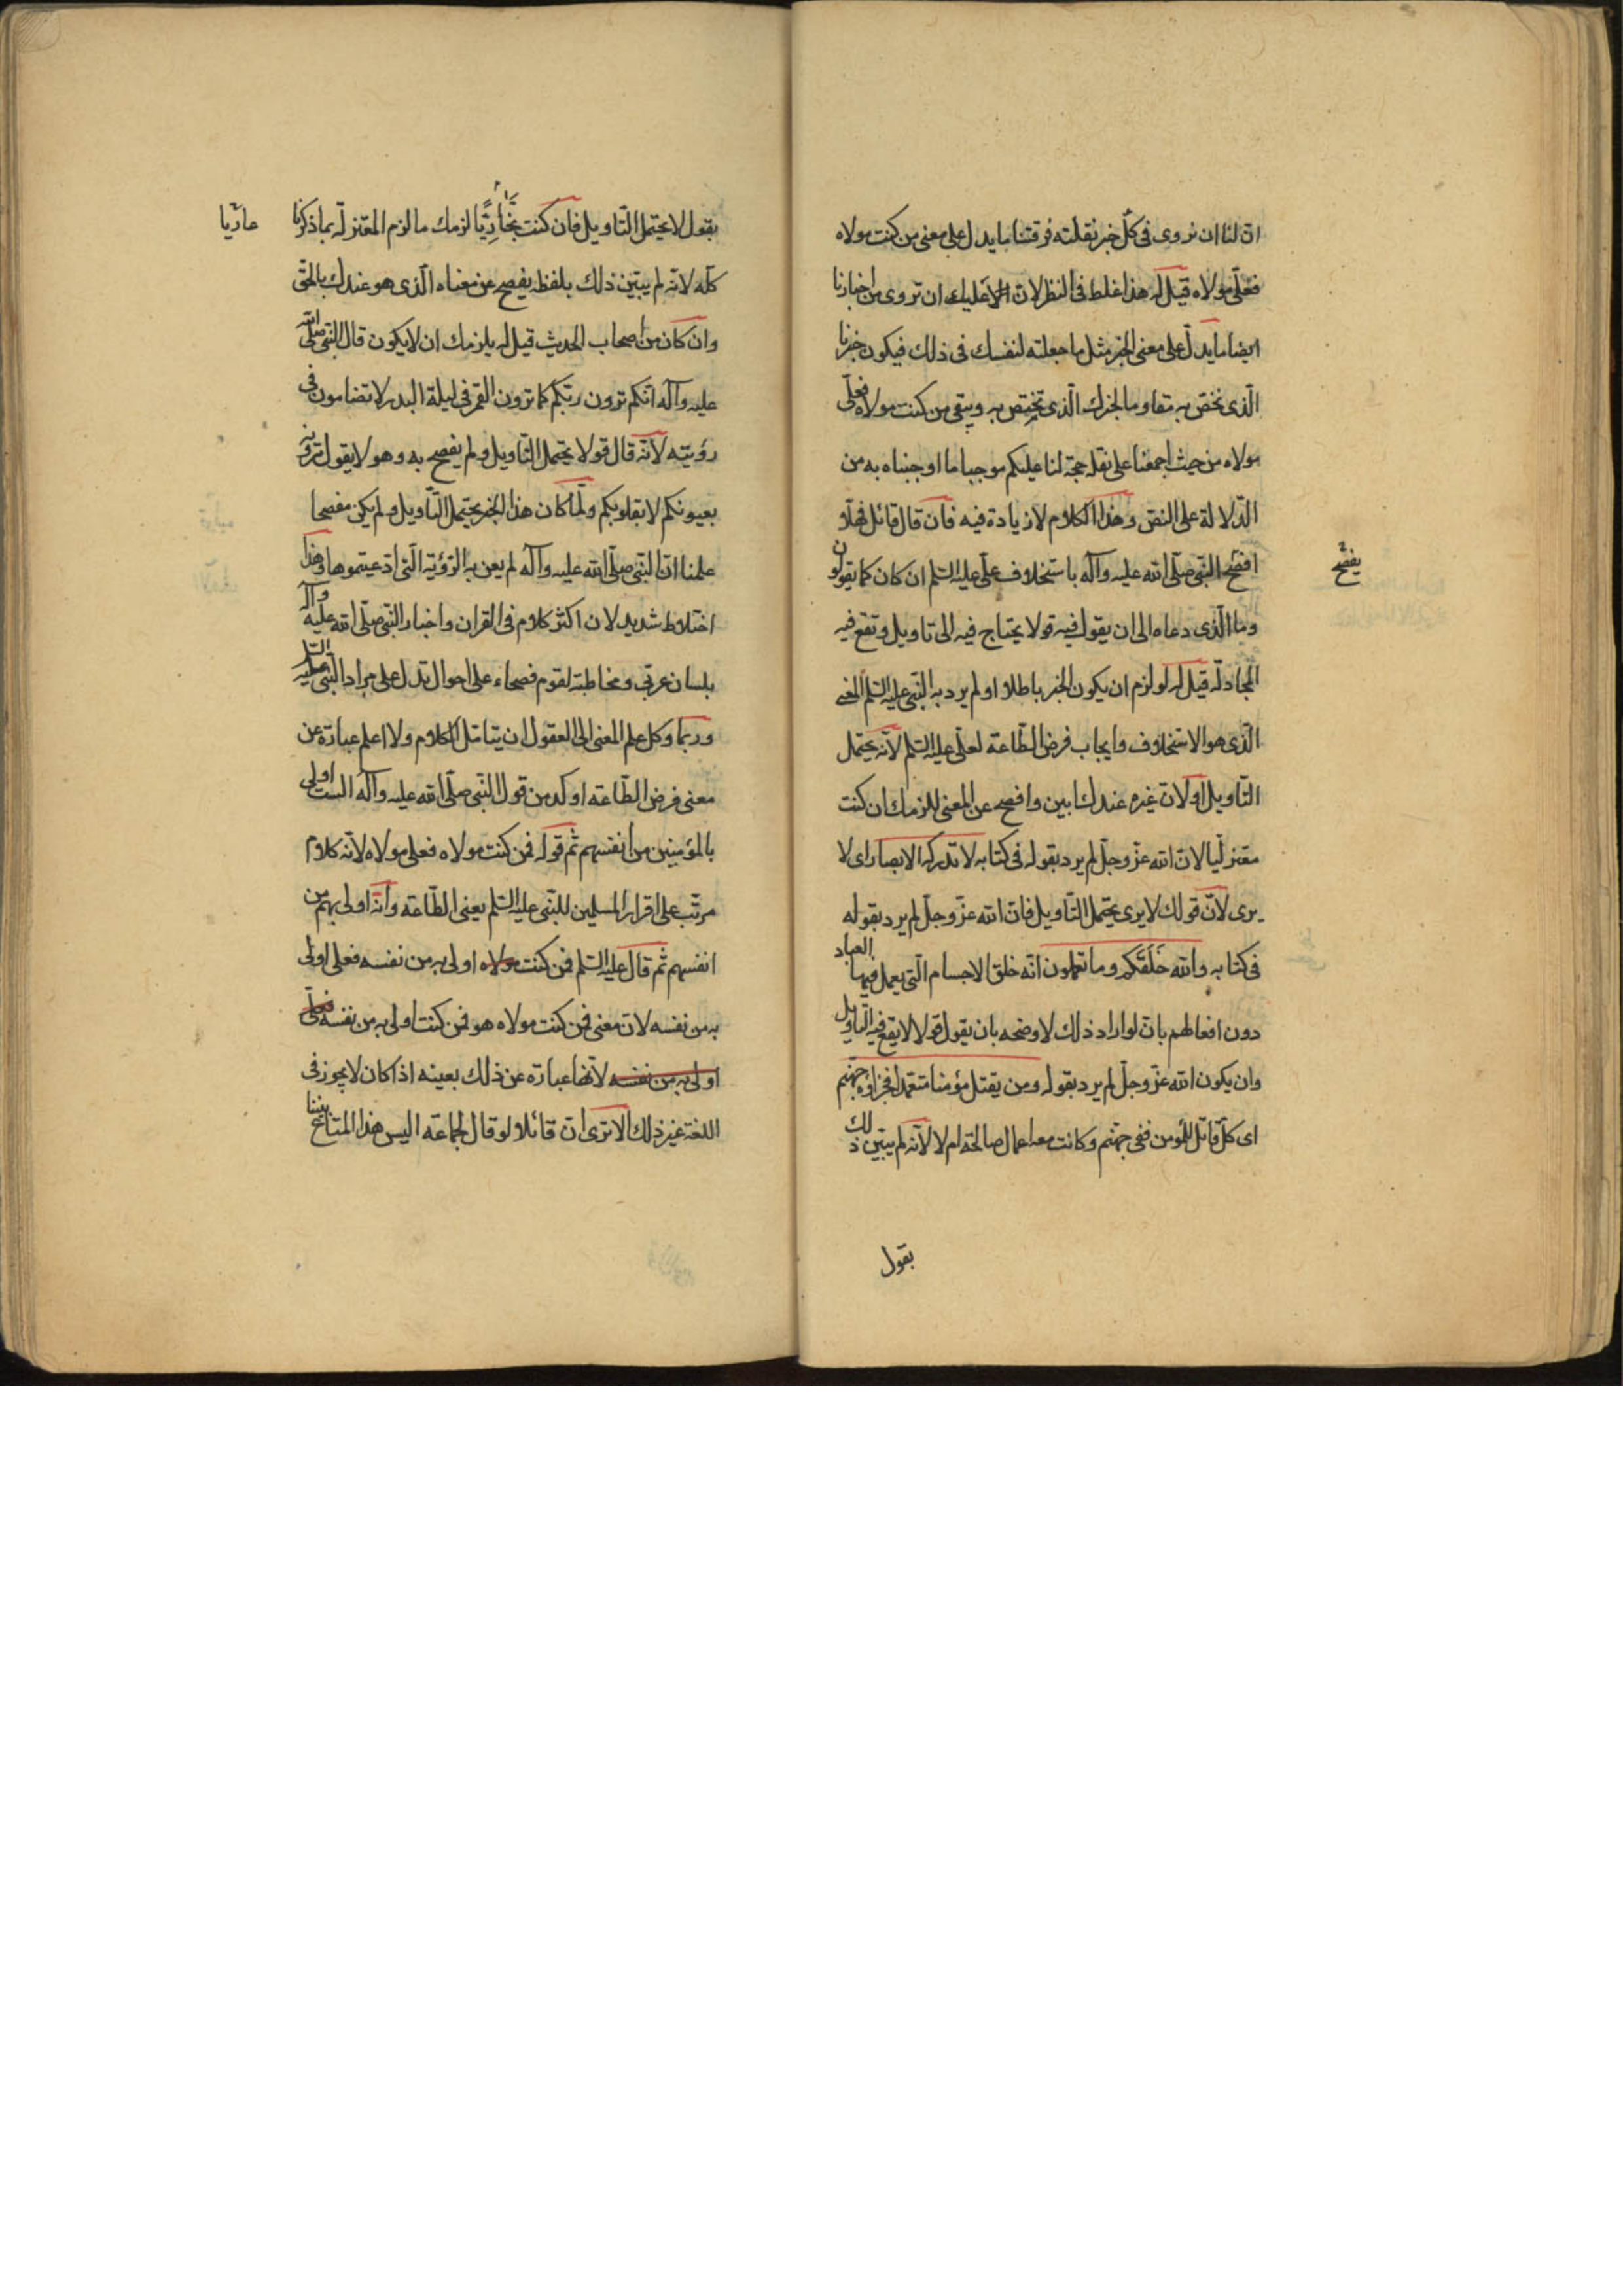 ان لنا ان نروى فى كل خبر نقلته فرقتنا ما يدل على معنى من كنت مولاه
فعلى مولاه قيل له هذا غلط فى النظر لان عليك ان تروى من اخبارنا
ايضا ما يدل على معنى الخبر مثل ما جعلته لنفسك فى ذلك فيكون خبرنا
الذى نختص به مقاوما لخبرك الذى تختص به ويبقى من كنت مولاه فعلى
مولاه من حيث اجمعنا على نقله حجة لنا عليكم موجبا ما اوجبناه به من
الدلالة على النص وهذا الكلام لا زيادة فيه فان قال قائل فهلا
افصح النبى صلى الله عليه وآله باستخلاف على عليه السلم ان كان كما يقولون
يفصح
وما الذى دعاه الى ان يقول فيه قولا يحتاج فيه الى تاويل وتقع فيه
المجادلة قيل له لو لزم ان يكون الخبر باطلا او لم يرد به النبى عليه السلم المعنى
الذى هو الاستخلاف وايجاب فرض الطاعة لعلى عليه السلم لانه يحتمل
التاويل او لان غيره عندك ابين وافصح عن المعنى للزمك ان كنت
معتزليا لان الله عز وجل لم يرد بقوله فى كتابه لا تدركه الابصار اى لا
يرى لان قولك لا يرى يحتمل التاويل فان الله عز وجل لم يرد بقوله
فى كتابه والله خَلَقَكم وما تعملون انه خلق الاجسام التى يعمل فيها العباد
دون افعالهم بان لو اراد ذلك لاوضحه بان يقول قولا لا يقع فيه التاويل
وان يكون الله عز وجل لم يرد بقوله ومن يقتل مؤمنا متعمدا فجزاؤه جهنم
اى كل قاتل للمؤمن ففى جهنم وكانت معه اعمال صالحة ام لا لانه لم يبين ذلك
بقول
بقول لا يحتمل التاويل فان كنت لزمك ما لزم المعتزلة بما ذكرنا
كله لانه لم يبين ذلك بلفظ يفصح عن معناه الذى هو عندك بالحق
وان كان من اصحاب الحديث قيل له يلزمك ان لا يكون قال النبى صلى الله
عليه وآله انكم ترون ربكم كما ترون القمر فى ليلة البدر لا تضامون فى
رؤيته لانه قال قولا يحتمل التاويل ولم يفصح به وهو لا يقول ترونه
بعيونكم لا بقلوبكم ولما كان هذا الخبر يحتمل التاويل ولم يكن مفصحا
علمنا ان النبى صلى الله عليه وآله لم يعن به الرؤية التى ادعيتموها وهذا
اختلاط شديد لان اكثر كلام فى القران واخبار النبى صلى الله عليه وآله
بلسان عربى ومخاطبة لقوم فصحاء على احوال تدل على مراد النبى عليه السلم
وربما وكل علم المعنى الى العقول ان يتامل الكلام ولا اعلم عبارة عن
معنى فرض الطاعة اوكد من قول النبى صلى الله عليه وآله الست اولى
بالمؤمنين من انفسهم ثم قوله فمن كنت مولاه فعلى مولاه لانه كلام
مرتب على اقرار المسلمين للنبى عليه السلم يعنى الطاعة وانه اولى بهم من
انفسهم ثم قال عليه السلم فمن كنت مولاه اولى به من نفسه فعلى اولى
به من نفسه لان معنى فمن كنت مولاه هو فمن كنت اولى به من نفسه فعلى
اولى به من نفسه لانها عبارة عن ذلك بعينه اذا كان لا يجوز فى
اللغة غير ذلك الا ترى ان قائلا لو قال لجماعة اليس هذا المتاع بيننا